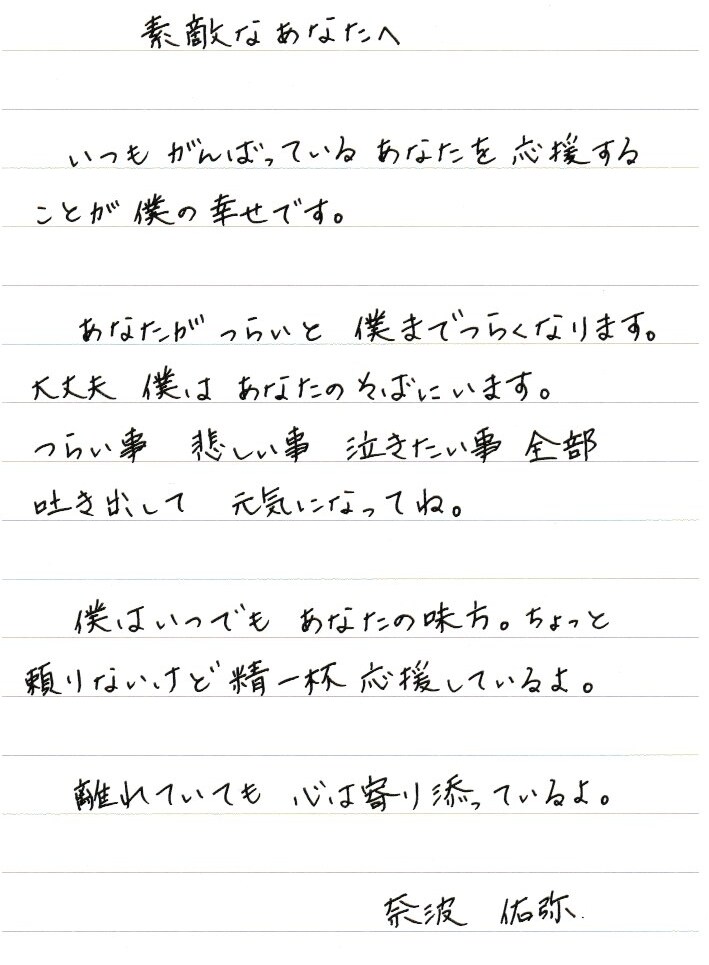 素敵なあなたへ
いつも がんばっている あなたを 応援する
ことが 僕の 幸せです。
あなたが つらいと 僕までつらくなります。
大丈夫 僕は あなたの そばにいます。
つらい事 悲しい事 泣きたい事 全部
吐き出して 元気になってね。
僕はいつでも あなたの味方。ちょっと
頼りないけど 精一杯 応援しているよ。
離れていても 心は寄り添っているよ。
奈波 佑弥